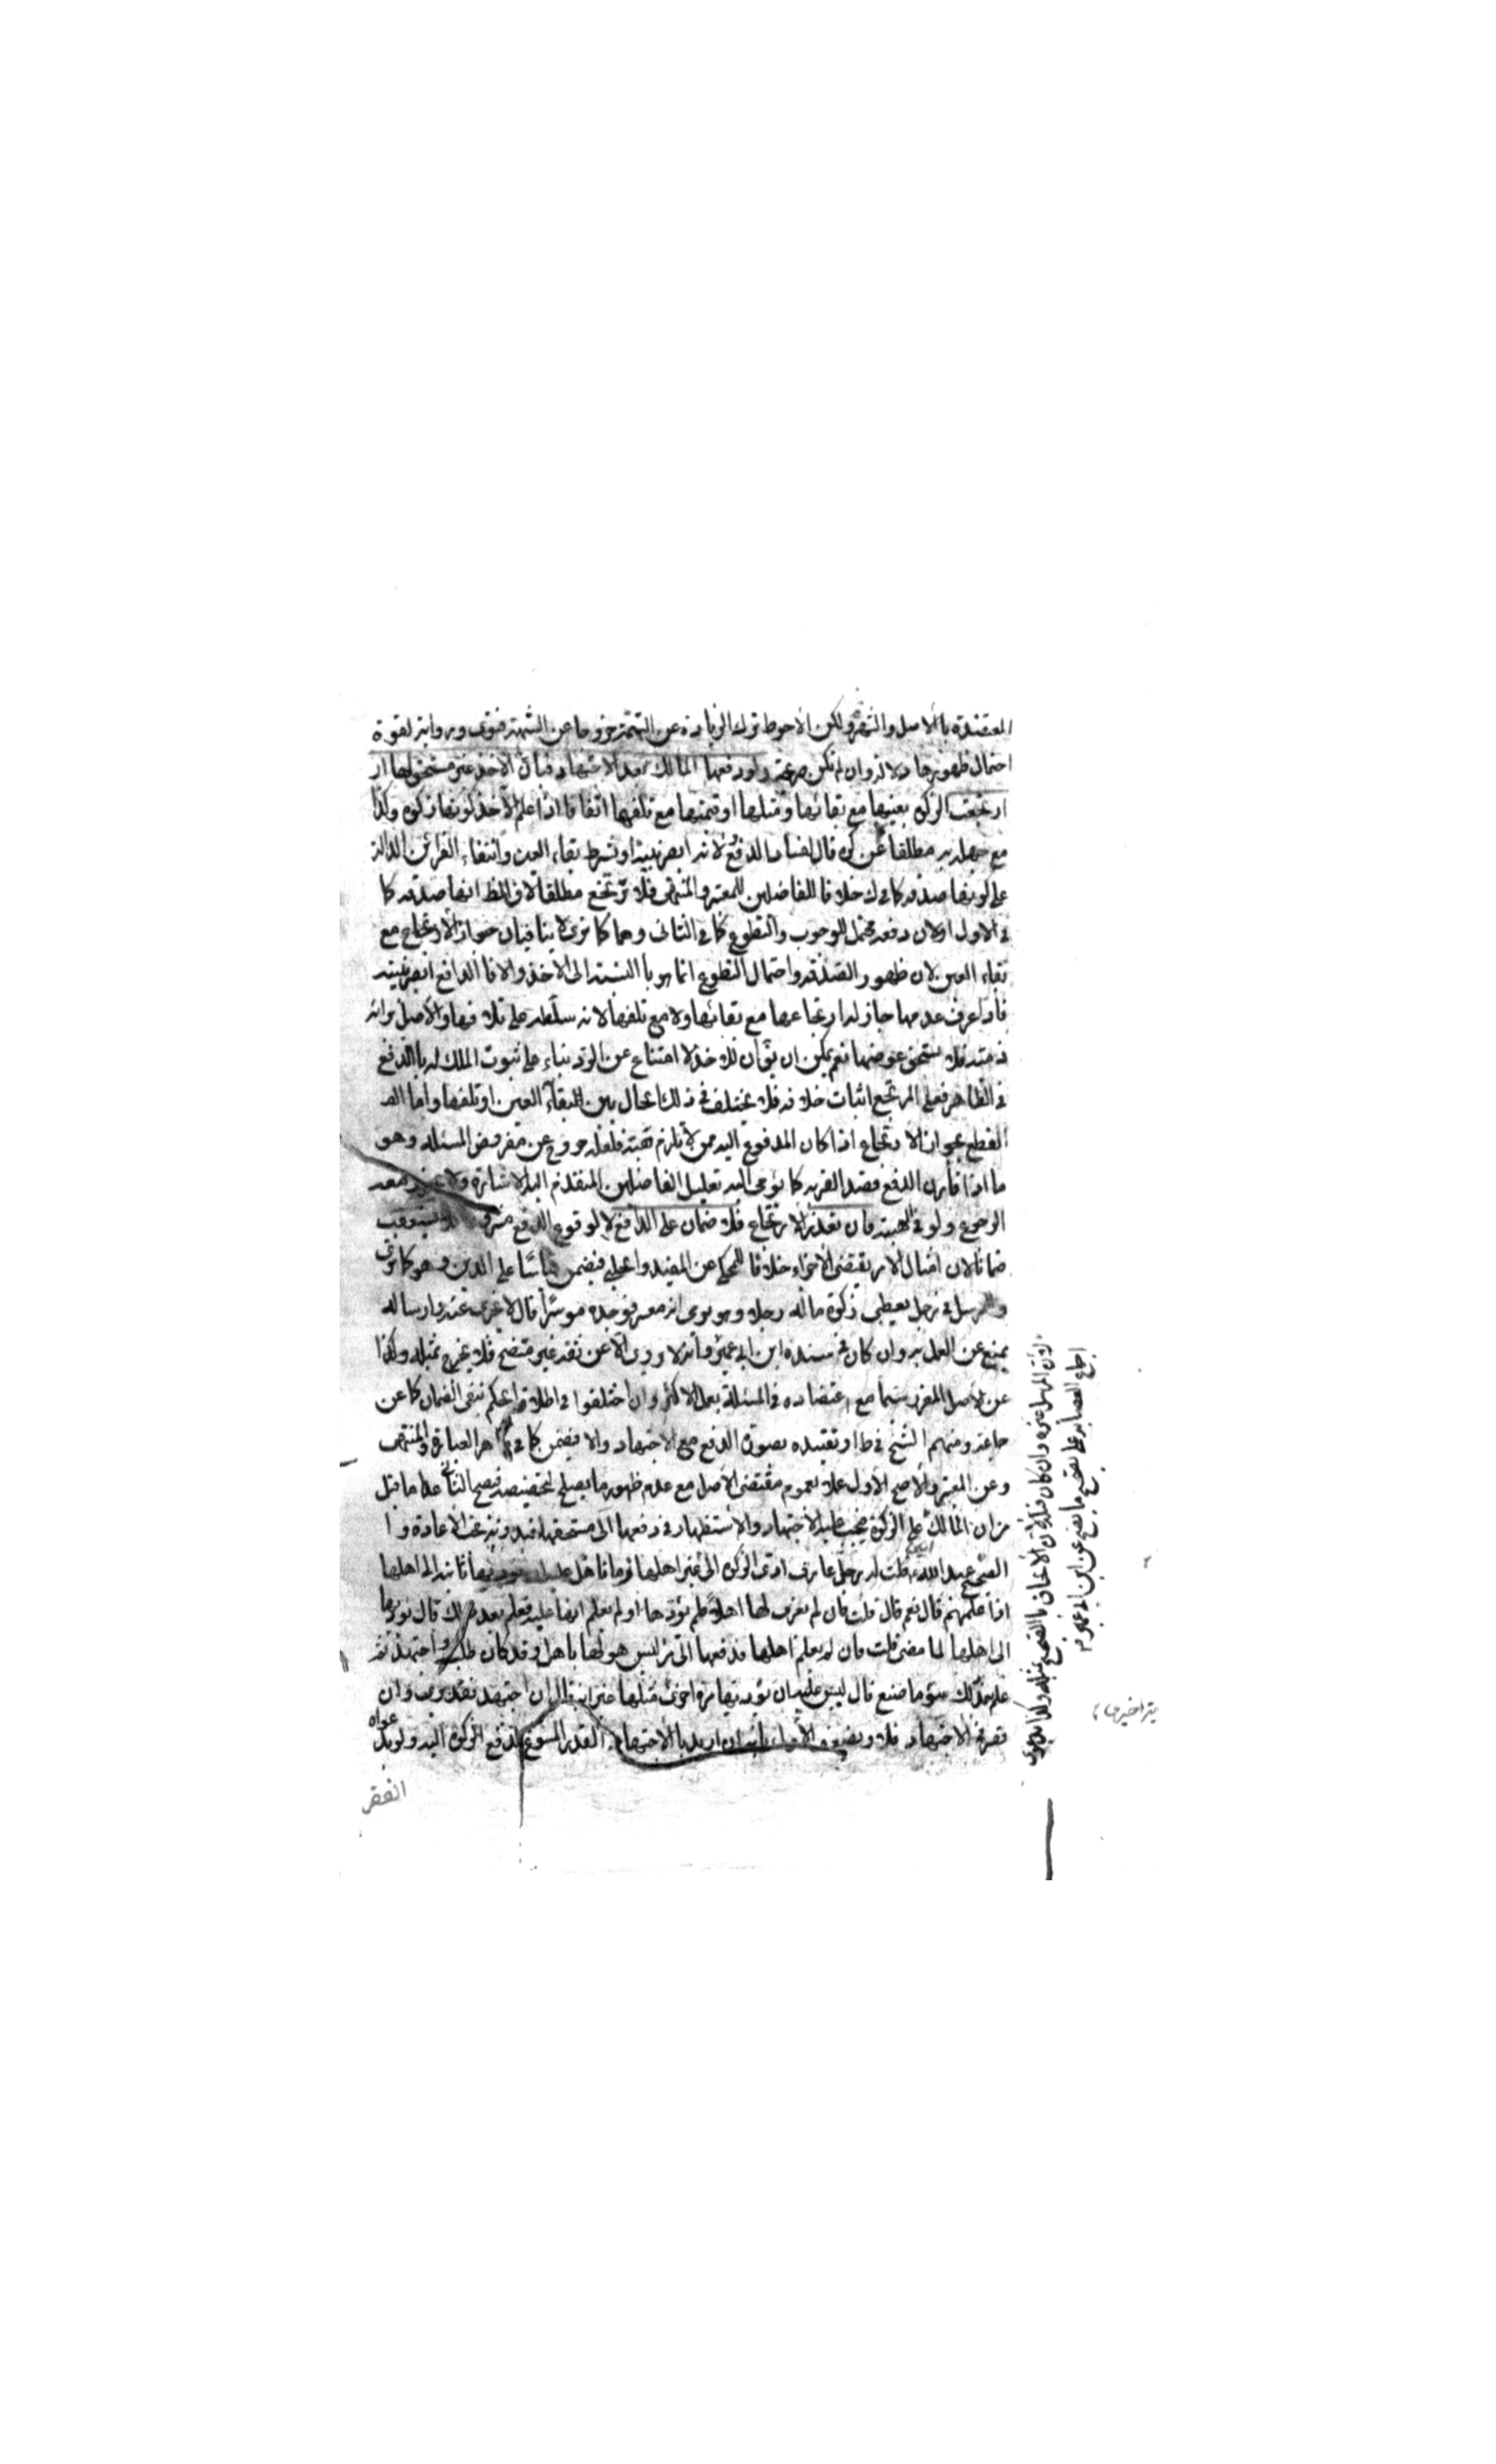 المعتضدة بالاصل والشهرة ولكن الاحوط ترك الزيادة عن التتمة خروجا عن الشبهة فتوى ورواية لقوة
احتمال ظهورها دلالة وان لم تكن صريحة ولو دفعها المالك بعد الاجتهاد فبان الاخذ غير مستحق لها
ارتجعت الزكوة بعينها مع بقائها ومثلها او قيمتها مع تلفها اتفاقا اذا علم الاخذ كونها زكوة وكذا
مع جهله به مطلقا لفساد الدفع لانه ابصر بنيته او بشرط بقاء العين وانتفاء القرائن الدالة
على كونها صدقة كما في ك خلافا للفاضلين للمعتبر والمنتهى فلا ترتجع مطلقا لان الظ انها صدقة كما
في الاول او لان دفعه محتمل للوجوب والتطوع كما في الثاني وهما كما ترى لا ينافيان جواز الارتجاع مع
بقاء العين لان ظهور الصدقة واحتمال التطوع انما هو بالنسبة الى الاخذ والا فالدافع ابصر بنيته
فاذا عرف عدمها جاز له ارتجاعها مع بقائها ولا مع تلفها لانه سلطه على تلافها والاصل برائة
ذمته فلا يستحق عوضها نعم يمكن ان يق ان للاخذ الامتناع عن الرد بناء على ثبوت الملك له بالدفع
في الظاهر فعلى المرتجع اثبات خلافه فلا يختلف في ذلك الحال بين البقاء العين او تلفها واما
القطع بجواز الارتجاع اذا كان المدفوع اليه ممن لا تلزم هبته فلعله خروج عن مفروض المسئلة وهو
ما اذا قارن الدفع قصد القربة كما يومى اليه تعليل الفاضلين المتقدم اليه الاشارة ولا يجوز معه
الرجوع ولو في الهبة فان تعذر الارتجاع فلا ضمان على الدافع لوقوع الدفع مشروعا فلا يستعقب
ضمانا لان امتثال الامر يقتضى الاجزاء خلافا للمحكى عن المفيد والحلبى فيضمن قياسا على الدين وهو كما ترى
والمرسل في رجل يعطى زكوة ماله رجلا وهو يرى انه معسر فوجده موسرا قال لا يجزى عنه وارساله
يمنع عن العمل به وان كان في سنده ابن ابي عمير وانه لا يروى الا عن ثقة غير متضح فلا يخرج بمثله ولذا
عن الاصل المقرر سيما مع اعتضاده في المسئلة بعمل الاكثر وان اختلفوا في اطلاق الحكم بنفى الضمان كما عن
جماعة ومنهم الشيخ في ط او تقييده بصورة الدفع مع الاجتهاد والا فيضمن كما في ظاهر العبارة والمنتهى
وعن المعتبر والاصح الاول عملا بعموم مقتضى الاصل مع عدم ظهور ما يصلح لتخصيصه فيصح الثاني عدا ما قيل
من ان المالك على الزكوة فيجب عليه الاجتهاد والاستظهار في دفعها الى مستحقها فبدونه تجب الاعادة و
الصحيح عبد الله ع قلت له رجل عارف ادى الزكوة الى غير اهلها زمانا هل عليه ان يؤديها ثانية الى اهلها
اذا علمهم قال نعم قال قلت فان لم يعرف لها اهلا فلم يؤدها او لم يعلم انها عليه فعلم بعد ذلك قال يؤديها
الى اهلها لما مضى قلت فان لم يعلم اهلها فدفعها الى من ليس هو لها باهل وقد كان طلب واجتهد ثم
علم بعد ذلك سوء ما صنع قال ليس عليه ان يؤديها مرة اخرى مثلها غير انه قال ان اجتهد فقد برئ وان
قصر في الاجتهاد فلا ويضعف الاول بانه ان اريد بالاجتهاد القدر المسوغ لدفع الزكوة اليه ولو بدعواه
الفقر
اجماع العصابة على تصحيح ما يصح عن ابن ابي عمير